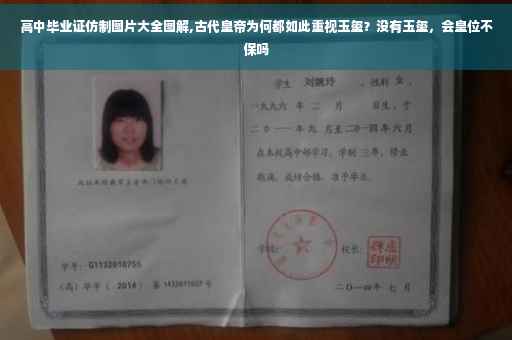 高中毕业证仿制图片大全图解,古代皇帝为何都如此重视玉玺？没有玉玺，会皇位不
保吗
学生 刘婉玲 ，性别 女 ，
一九九六 年 二 月 日生，于
二〇一一年 九 月至二〇一四年 六 月
在本校高中部学习，学制 三年，修业
期满，成绩合格，准予毕业。
学号：G1132010755
学校： 校长：
（高）毕字（ 2014 ）第 1432011027 号
二〇一四年 七 月